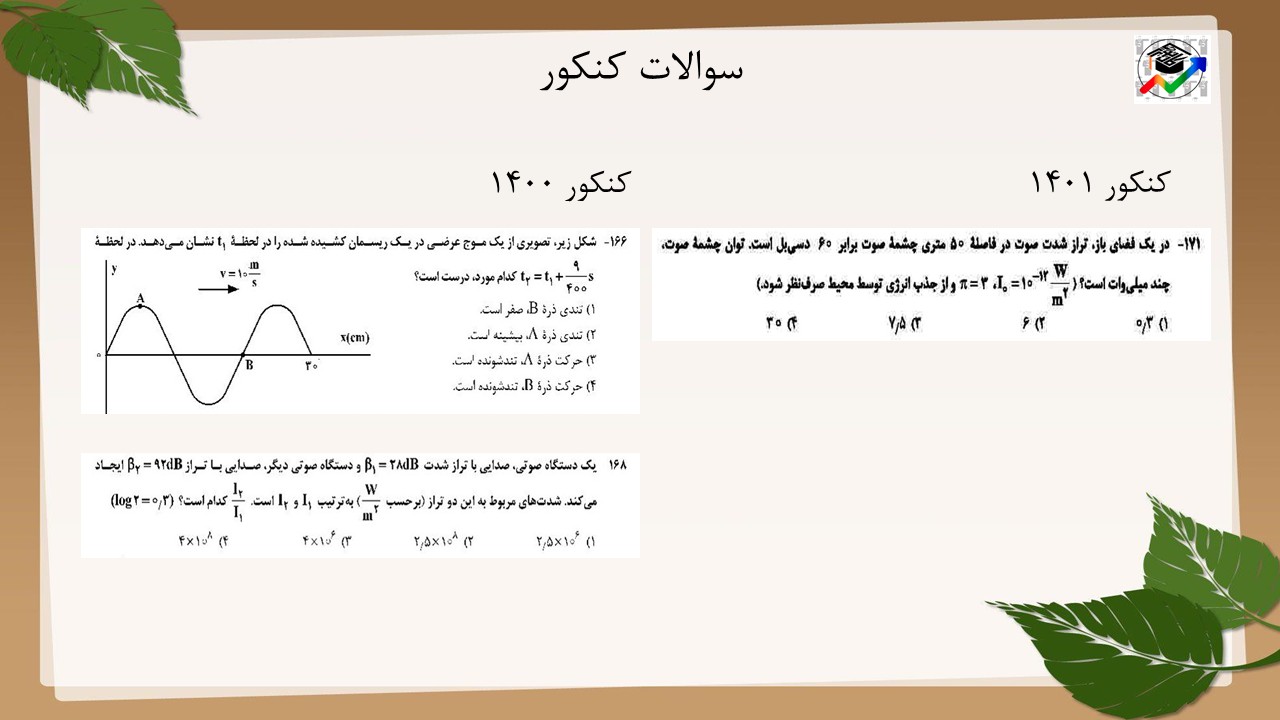 سوالات کنکور
کنکور ۱۴۰۱
۱۷۱- در یک فضای باز، تراز شدت صوت در فاصلهٔ ۵۰ متری چشمهٔ صوت برابر ۶۰ دسی‌بل است. توان چشمهٔ صوت،
چند میلی‌وات است؟ (I₀ = ۱۰⁻¹² W/m²، π = ۳ و از جذب انرژی توسط محیط صرف‌نظر شود.)
۱) ۰٫۳ ۲) ۶ ۳) ۷٫۵ ۴) ۳۰
کنکور ۱۴۰۰
۱۶۶- شکل زیر، تصویری از یک موج عرضی در یک ریسمان کشیده شده را در لحظهٔ t₁ نشان می‌دهد. در لحظهٔ
t₂ = t₁ + ۹/۴۰۰ s کدام مورد، درست است؟
۱) تندی ذرهٔ B، صفر است.
۲) تندی ذرهٔ A، بیشینه است.
۳) حرکت ذرهٔ A، تندشونده است.
۴) حرکت ذرهٔ B، تندشونده است.
y
v = ۱۰ m/s
A
x(cm)
۰
B
۳۰
۱۶۸ یک دستگاه صوتی، صدایی با تراز شدت β₁ = ۲۸dB و دستگاه صوتی دیگر، صدایی با تراز β₂ = ۹۲dB ایجاد
می‌کند. شدت‌های مربوط به این دو تراز (برحسب W/m²) به‌ترتیب I₁ و I₂ است. I₂/I₁ کدام است؟ (log۲ = ۰٫۳)
۱) ۲٫۵×۱۰⁶ ۲) ۲٫۵×۱۰⁸ ۳) ۴×۱۰⁶ ۴) ۴×۱۰⁸